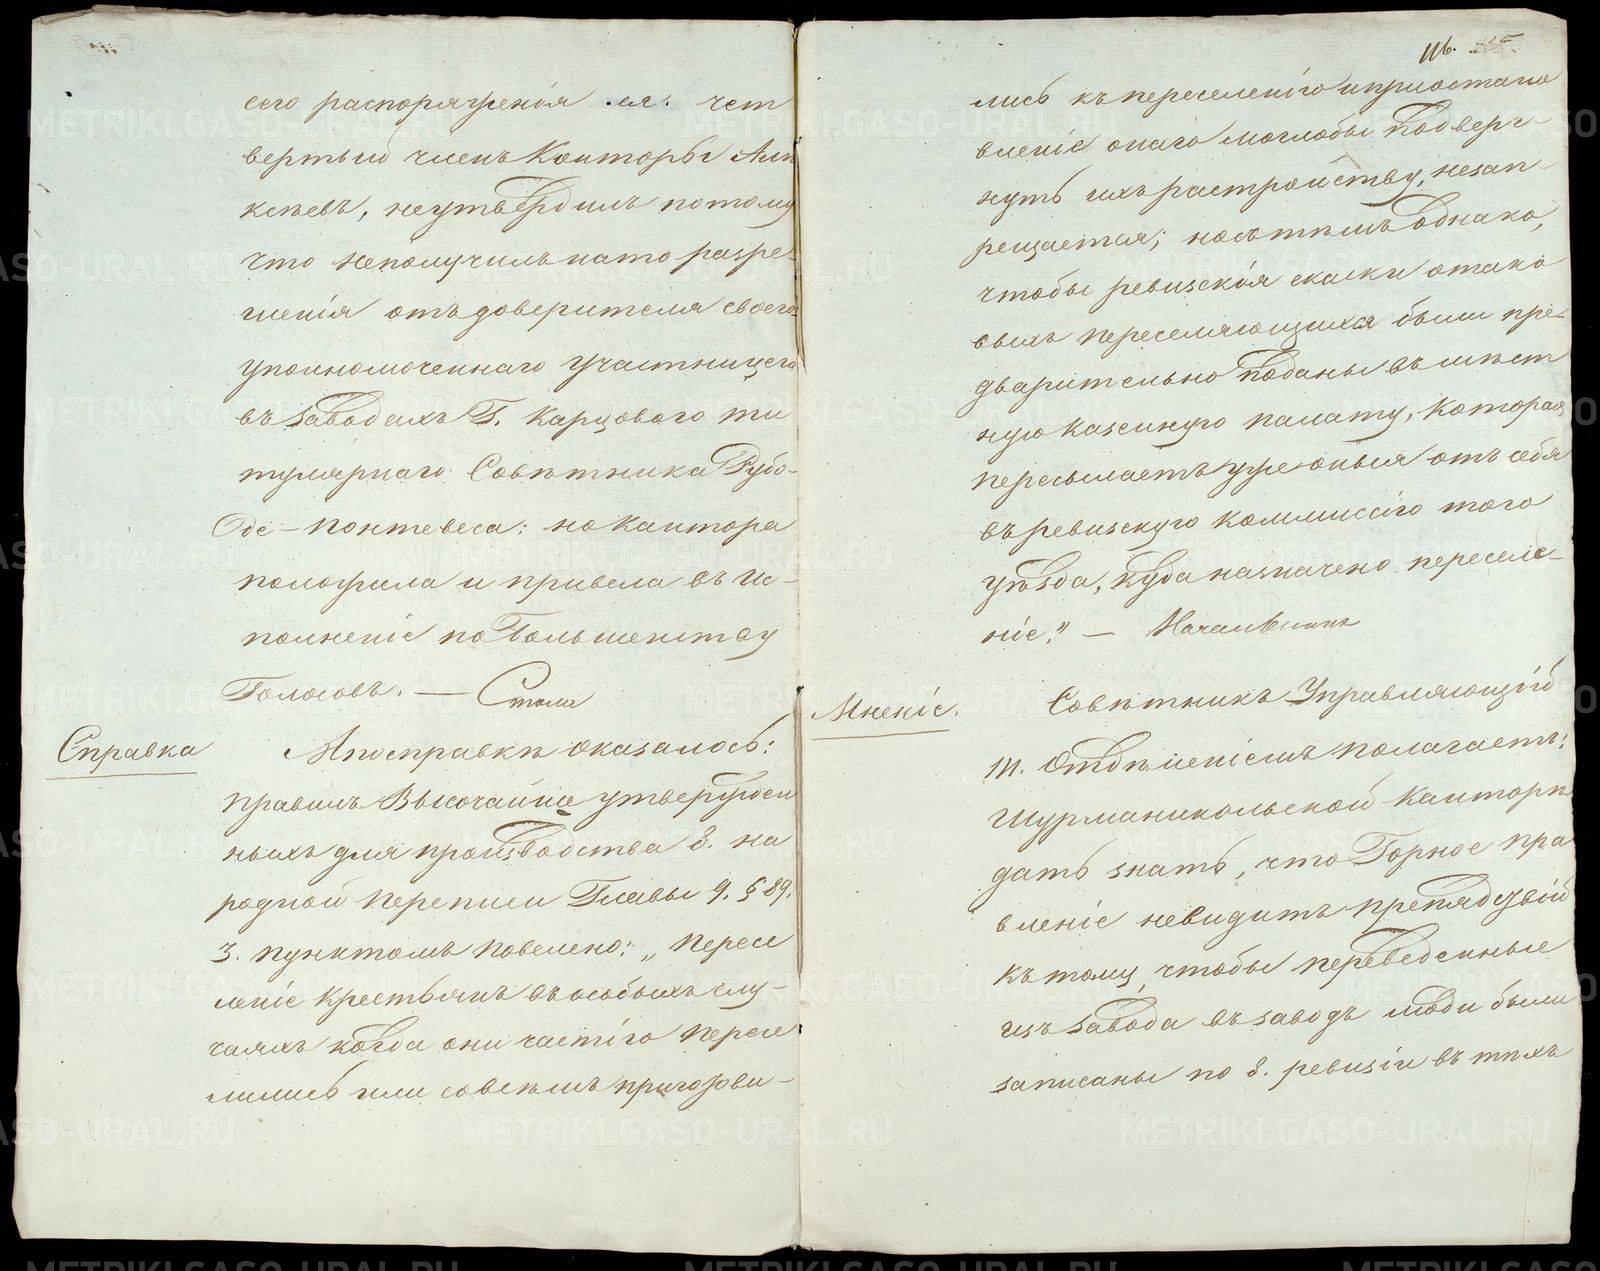 сего распоряженія .ея. чет
вертый членъ Конторы Але
ксѣевъ, неутвердилъ потому
что неполучилъ нато разре-
шенія отъ доверителя своего
уполномоченнаго участницего
въ заводахъ Г. Карцового ти
тулярнаго Совѣтника Рубо-
Оде-понтевеса: но Кантора
положила и привела въ ис-
полненіе по Большенству
Голосовъ. —
Справка
Апосправкѣ оказалось:
правилъ Высочайше утвержден
ныхъ для производства 8. на
родной переписи Главы 9. § 89.
3. пунктомъ повелено: „ пересе
леніе крестьянъ въ особыхъ слу-
чаяхъ когда они частію пересе
лились или совсѣмъ приготови-
116.
лись къ переселенію и приостано
вленіе онаго моглобы подверг-
нуть ихъ растройству, незап-
рещается; носътѣмъ однако,
чтобы ревизскія сказки о тако
выхъ переселяющихся были пре-
дварительно поданы въ мѣст
ную казенную палату, которая
пересылаетъ уже оныя отъ себя
въ ревизскую коммиссію того
уѣзда, куда назначено переселе-
ніе." —
Мненіе.
Совѣтникъ Управляющій
III. Отдѣленіемъ полагаетъ:
Шурманикольской Канторѣ
дать знать, что Горное пра
вленіе невидитъ препядствій
къ тому, чтобы переведенные
изъ завода въ заводъ люди были
записаны по 8. ревизіи въ тѣхъ
METRIKI.GASO-URAL.RU